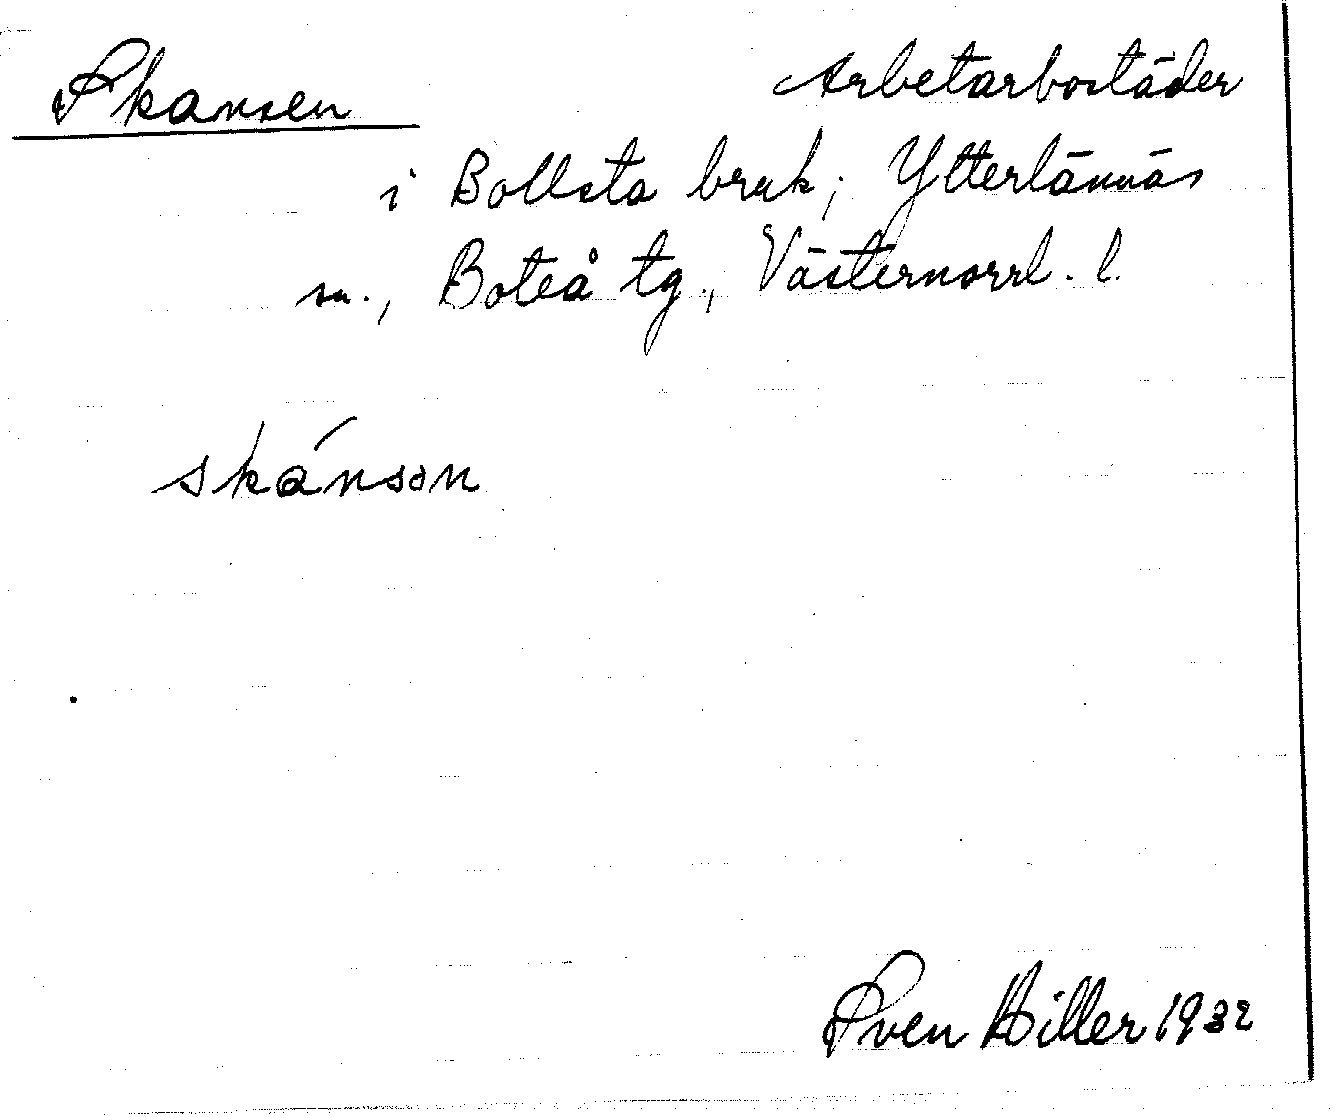 Skansen Arbetarbostäder
i Bollsta bruk; Ytterlännäs
sn., Boteå tg., Västernorrl. l.
skánsən
Sven Hiller 1932